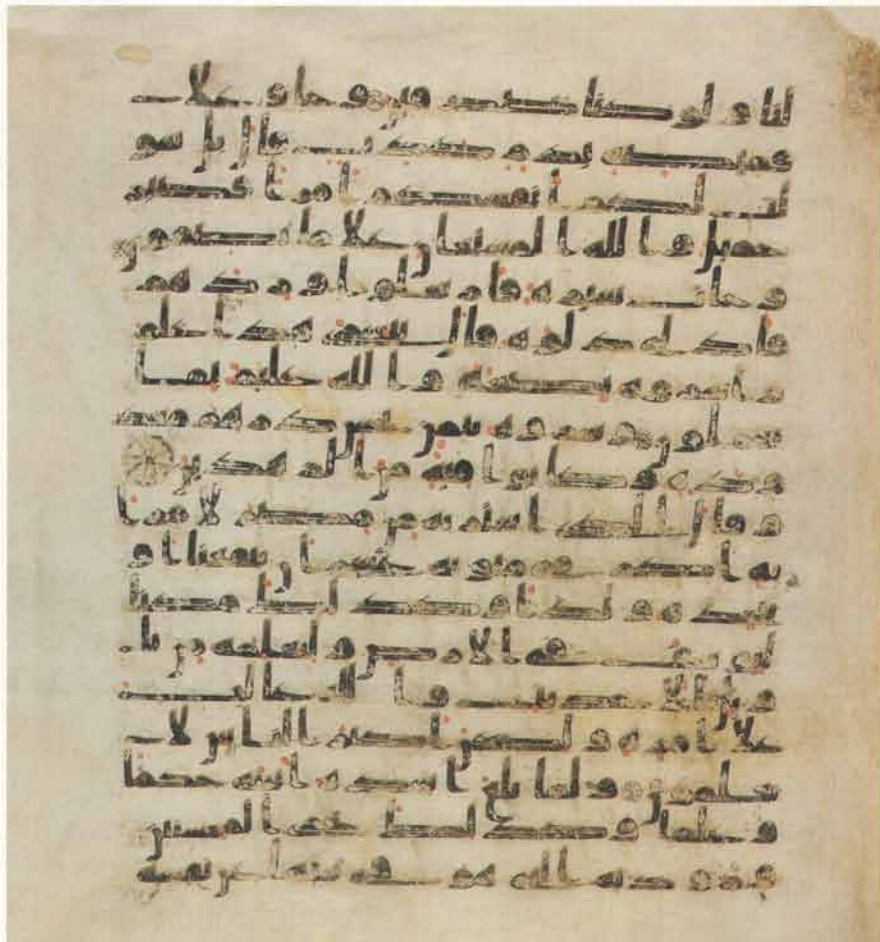 لنا ولو كنا صدقين وجاو علا
قميصه بدم كذب قال بل سو
لت لكم انفسكم امرا فصبر
جميل والله المستعان علا ما تصفون
وجات سيرة فارسلوا واردهم
فادلى دلوه قال يبشرى هذا غلم
واسروه بضعة والله عليم بما
يعملون وشروه بثمن بخس درهم معد
ودة وكانوا فيه من الزهدين
وقال الذي اشتريه من مصر لامرا
ته اكرمي مثويه عسى ان ينفعنا او
نتخذه ولدا وكذلك مكنا
ليوسف في الارض ولنعلمه من تا
ويل الاحديث والله غالب
علا امره ولكن اكثر الناس لا
يعلمون ولما بلغ اشده اتينه حكما
وعلما وكذلك نجزي المحسنين
ورودته التي هو في بيتها عن نفسه